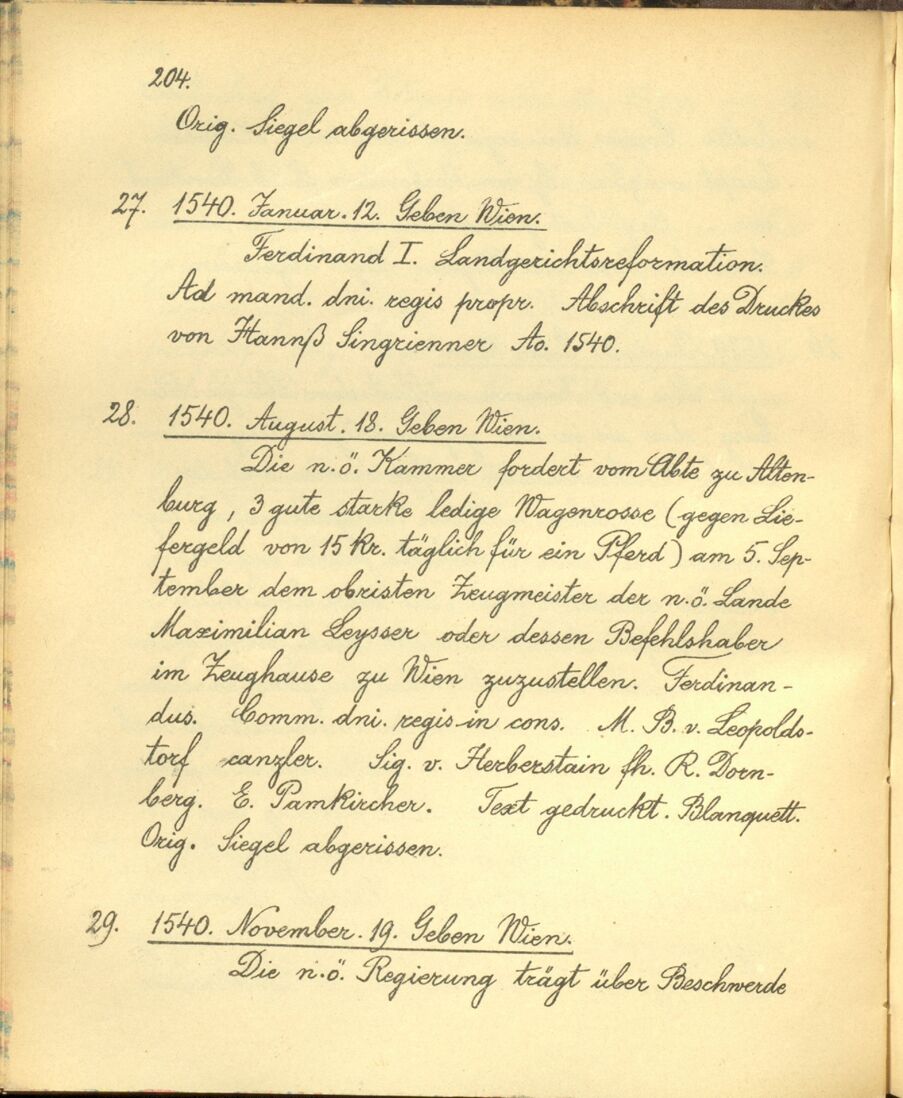 204.
Orig. Siegel abgerissen.
27. 1540. Januar. 12. Geben Wien.
Ferdinand I. Landgerichtsreformation.
Ad mand. dni. regis propr. Abschrift des Druckes
von Hannß Singrienner Ao. 1540.
28. 1540. August. 18. Geben Wien.
Die n.ö. Kammer fordert vom Abte zu Alten-
burg, 3 gute starke ledige Wagenrosse (gegen Lie-
fergeld von 15 Kr. täglich für ein Pferd) am 5. Sep-
tember dem obristen Zeugmeister der n.ö. Lande
Maximilian Leysser oder dessen Befehlshaber
im Zeughause zu Wien zuzustellen. Ferdinan-
dus. Comm. dni. regis in cons. M. B. v. Leopolds-
torf canzler. Sig. v. Herberstain fh. R. Dorn-
berg. E. Pamkircher. Text gedruckt. Blanquett.
Orig. Siegel abgerissen.
29. 1540. November. 19. Geben Wien.
Die n.ö. Regierung trägt über Beschwerde